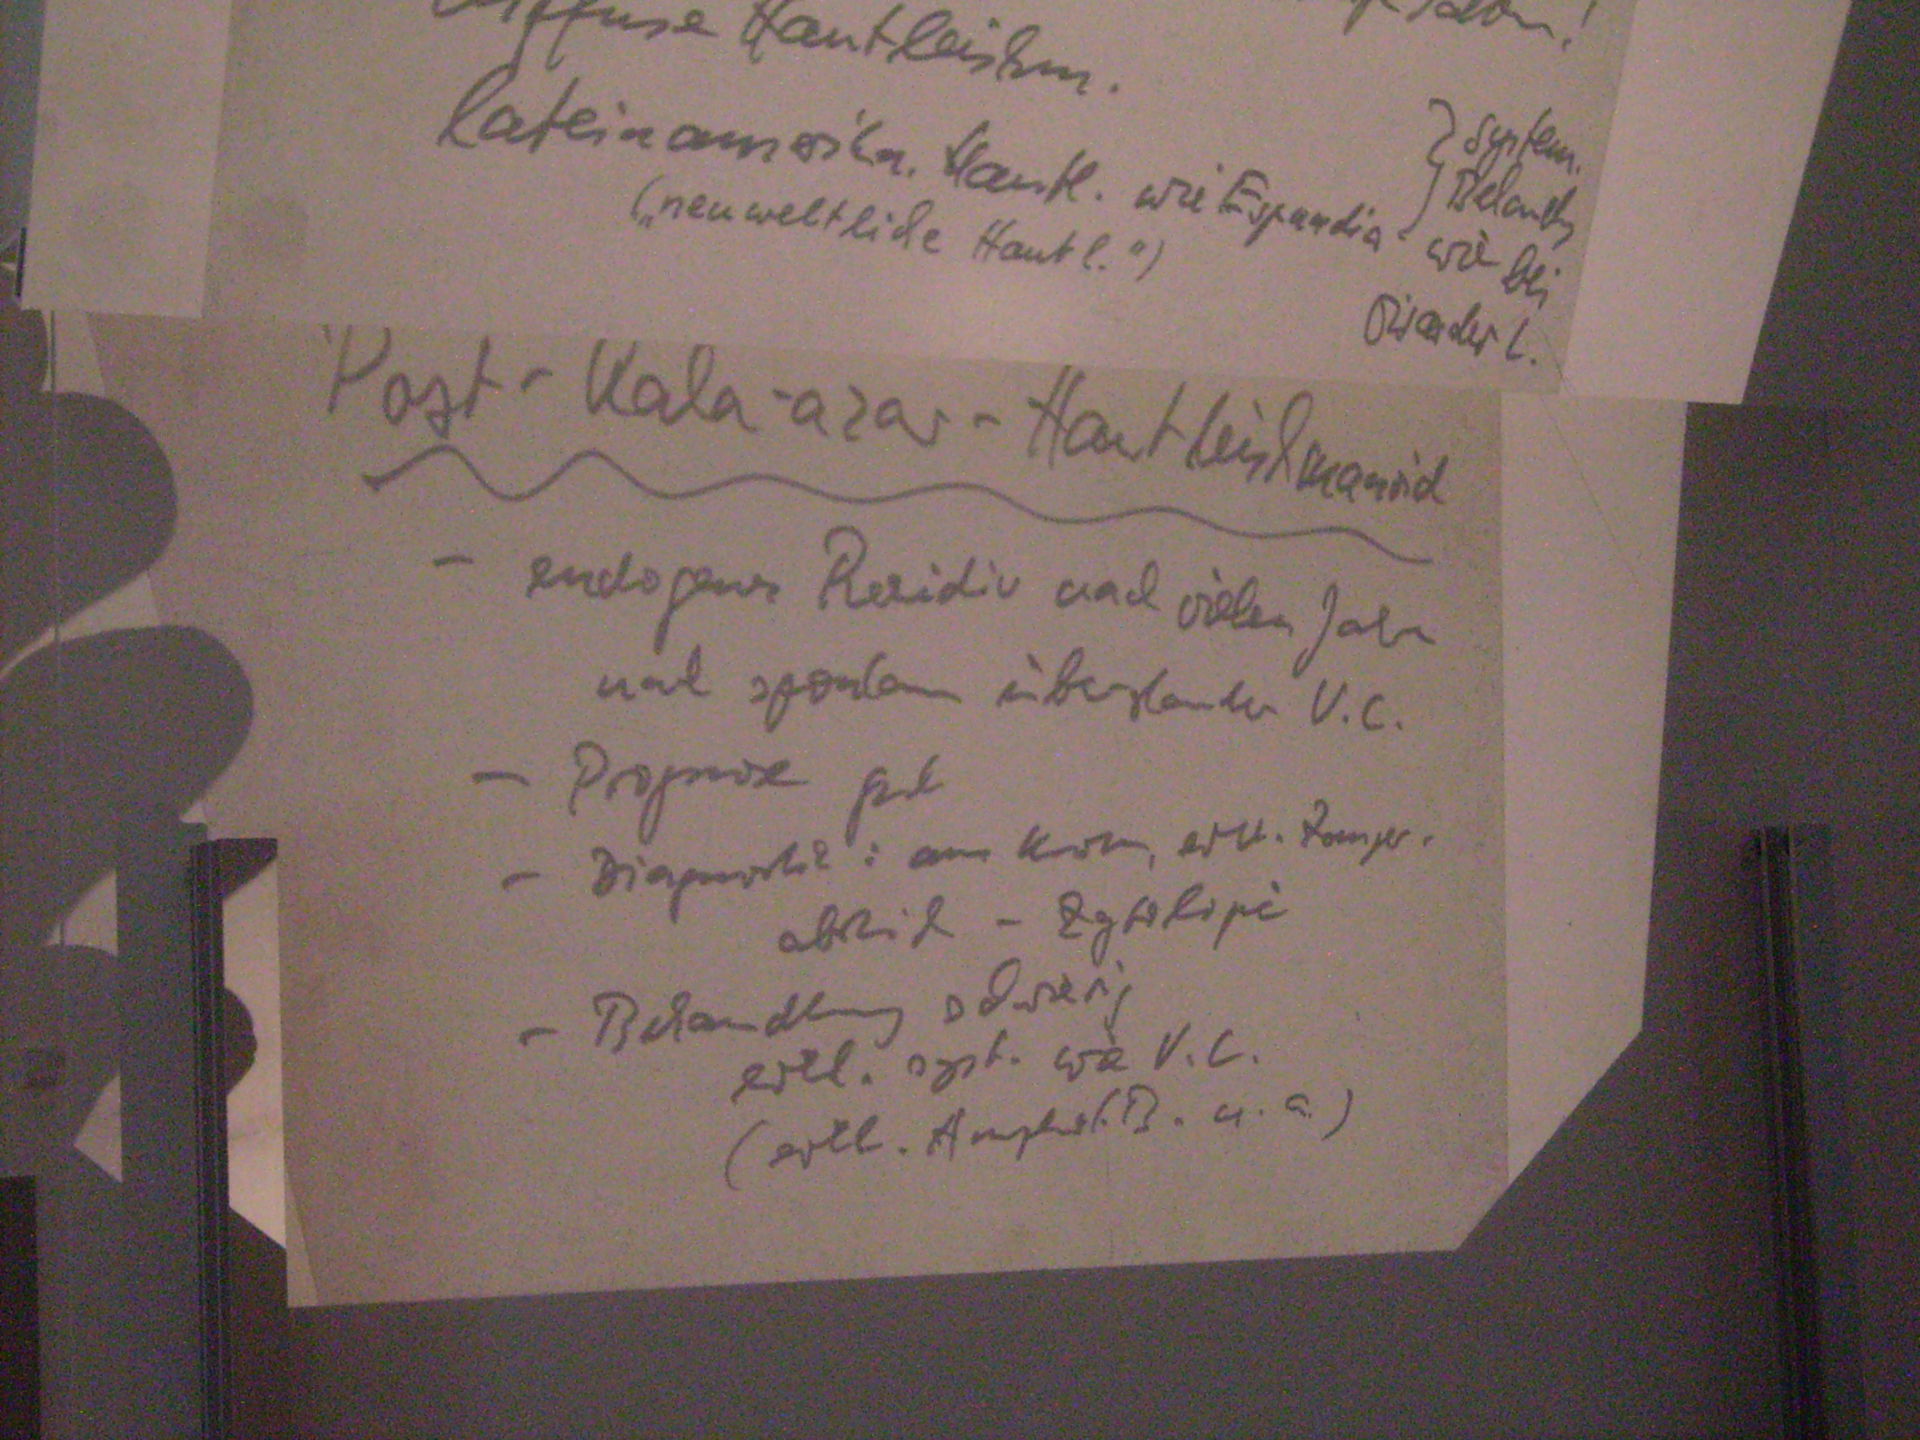 Diffuse Hautleishm.
Lateinamerikan. Hautl. wie Espundia
("neuweltliche Hautl.")
} System.
Behandlg
wie bei
Viszeraler L.
Post-Kala-azar-Hautleishmanoid
- endogenes Rezidiv nach vielen Jahren
nach spontan überstandener V.L.
- Prognose gut
- Diagnostik: am Krkn, evtl.
abstrich - Zytologie
- Behandlung schwierig
evtl. syst. wie V.L.
(evtl. Amphot. B. u.a.)